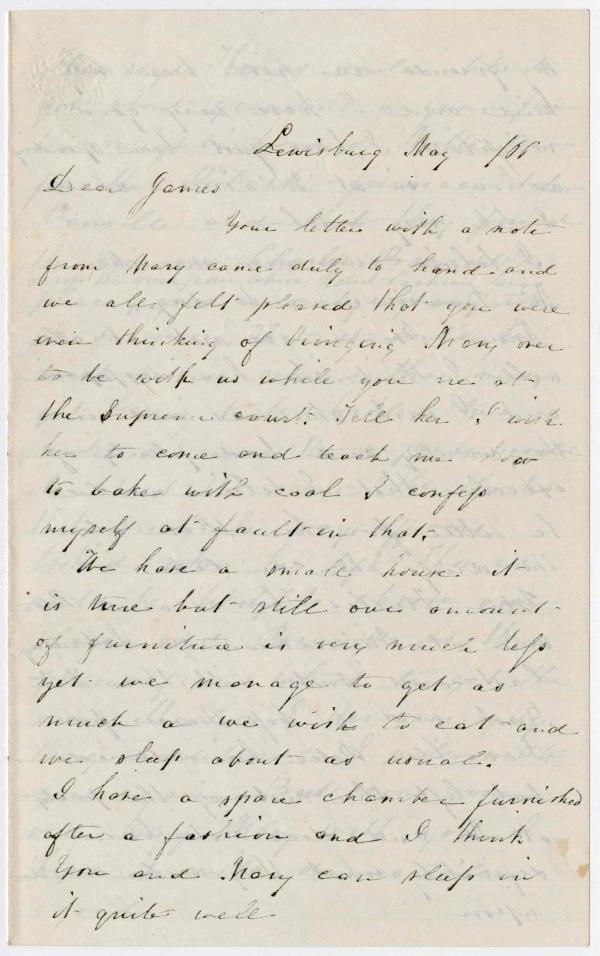 Lewisburg May /66
Dear James
Your letter with a note
from Mary came duly to hand and
we all felt pleased that you were
even thinking of bringing Mary over
to be with us while you are at
the Supreme court. Tell her I wish
her to come and teach me how
to bake with coal I confess
myself at fault in that.
We have a small house it
is true but still our amount
of furniture is very much less
yet we manage to get as
much a we wish to eat and
we sleep about as usual.
I have a spare chamber furnished
after a fashion and I think
You and Mary can sleep in
it quite well